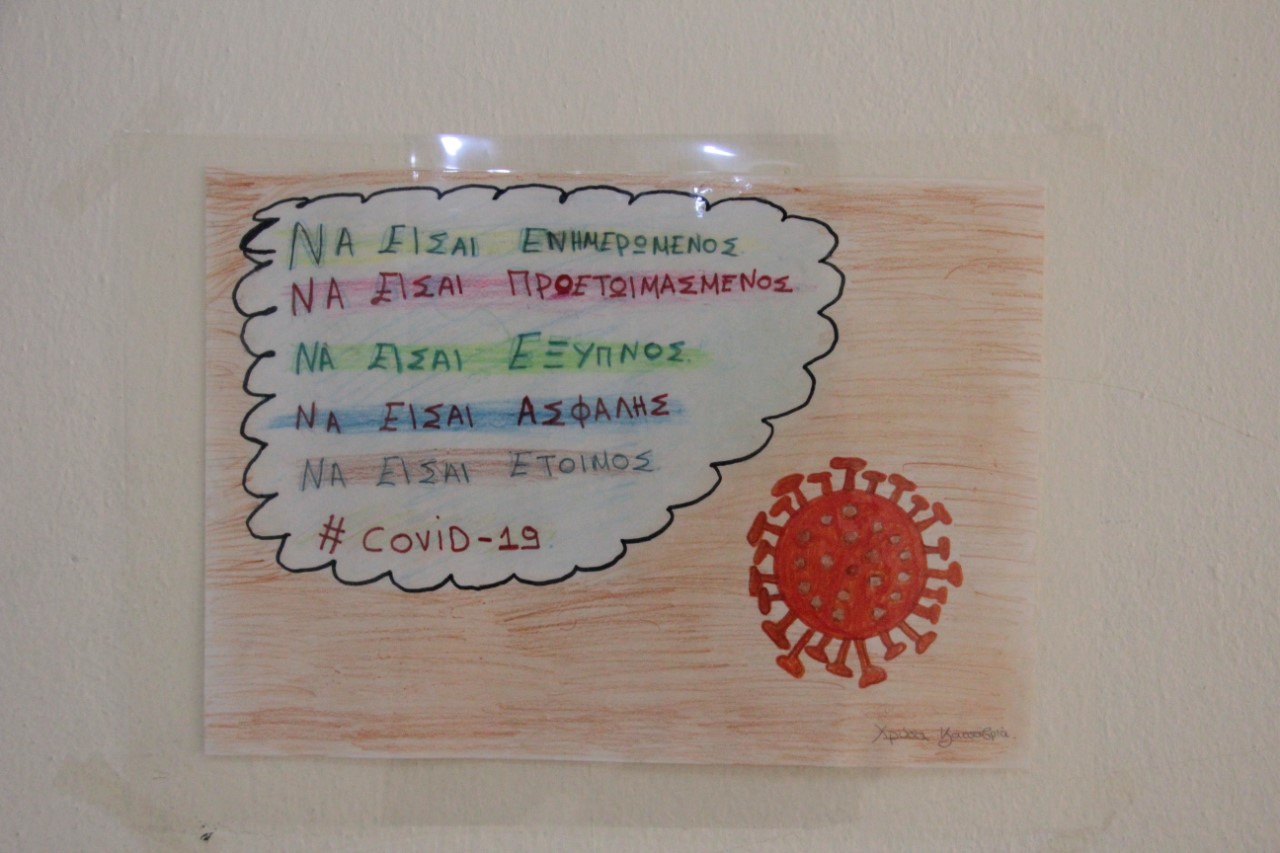 ΝΑ ΕΙΣΑΙ ΕΝΗΜΕΡΩΜΕΝΟΣ
ΝΑ ΕΙΣΑΙ ΠΡΟΕΤΩΙΜΑΣΜΕΝΟΣ
ΝΑ ΕΙΣΑΙ ΕΞΥΠΝΟΣ
ΝΑ ΕΙΣΑΙ ΑΣΦΑΛΗΣ
ΝΑ ΕΙΣΑΙ ΕΤΟΙΜΟΣ
# COViD-19